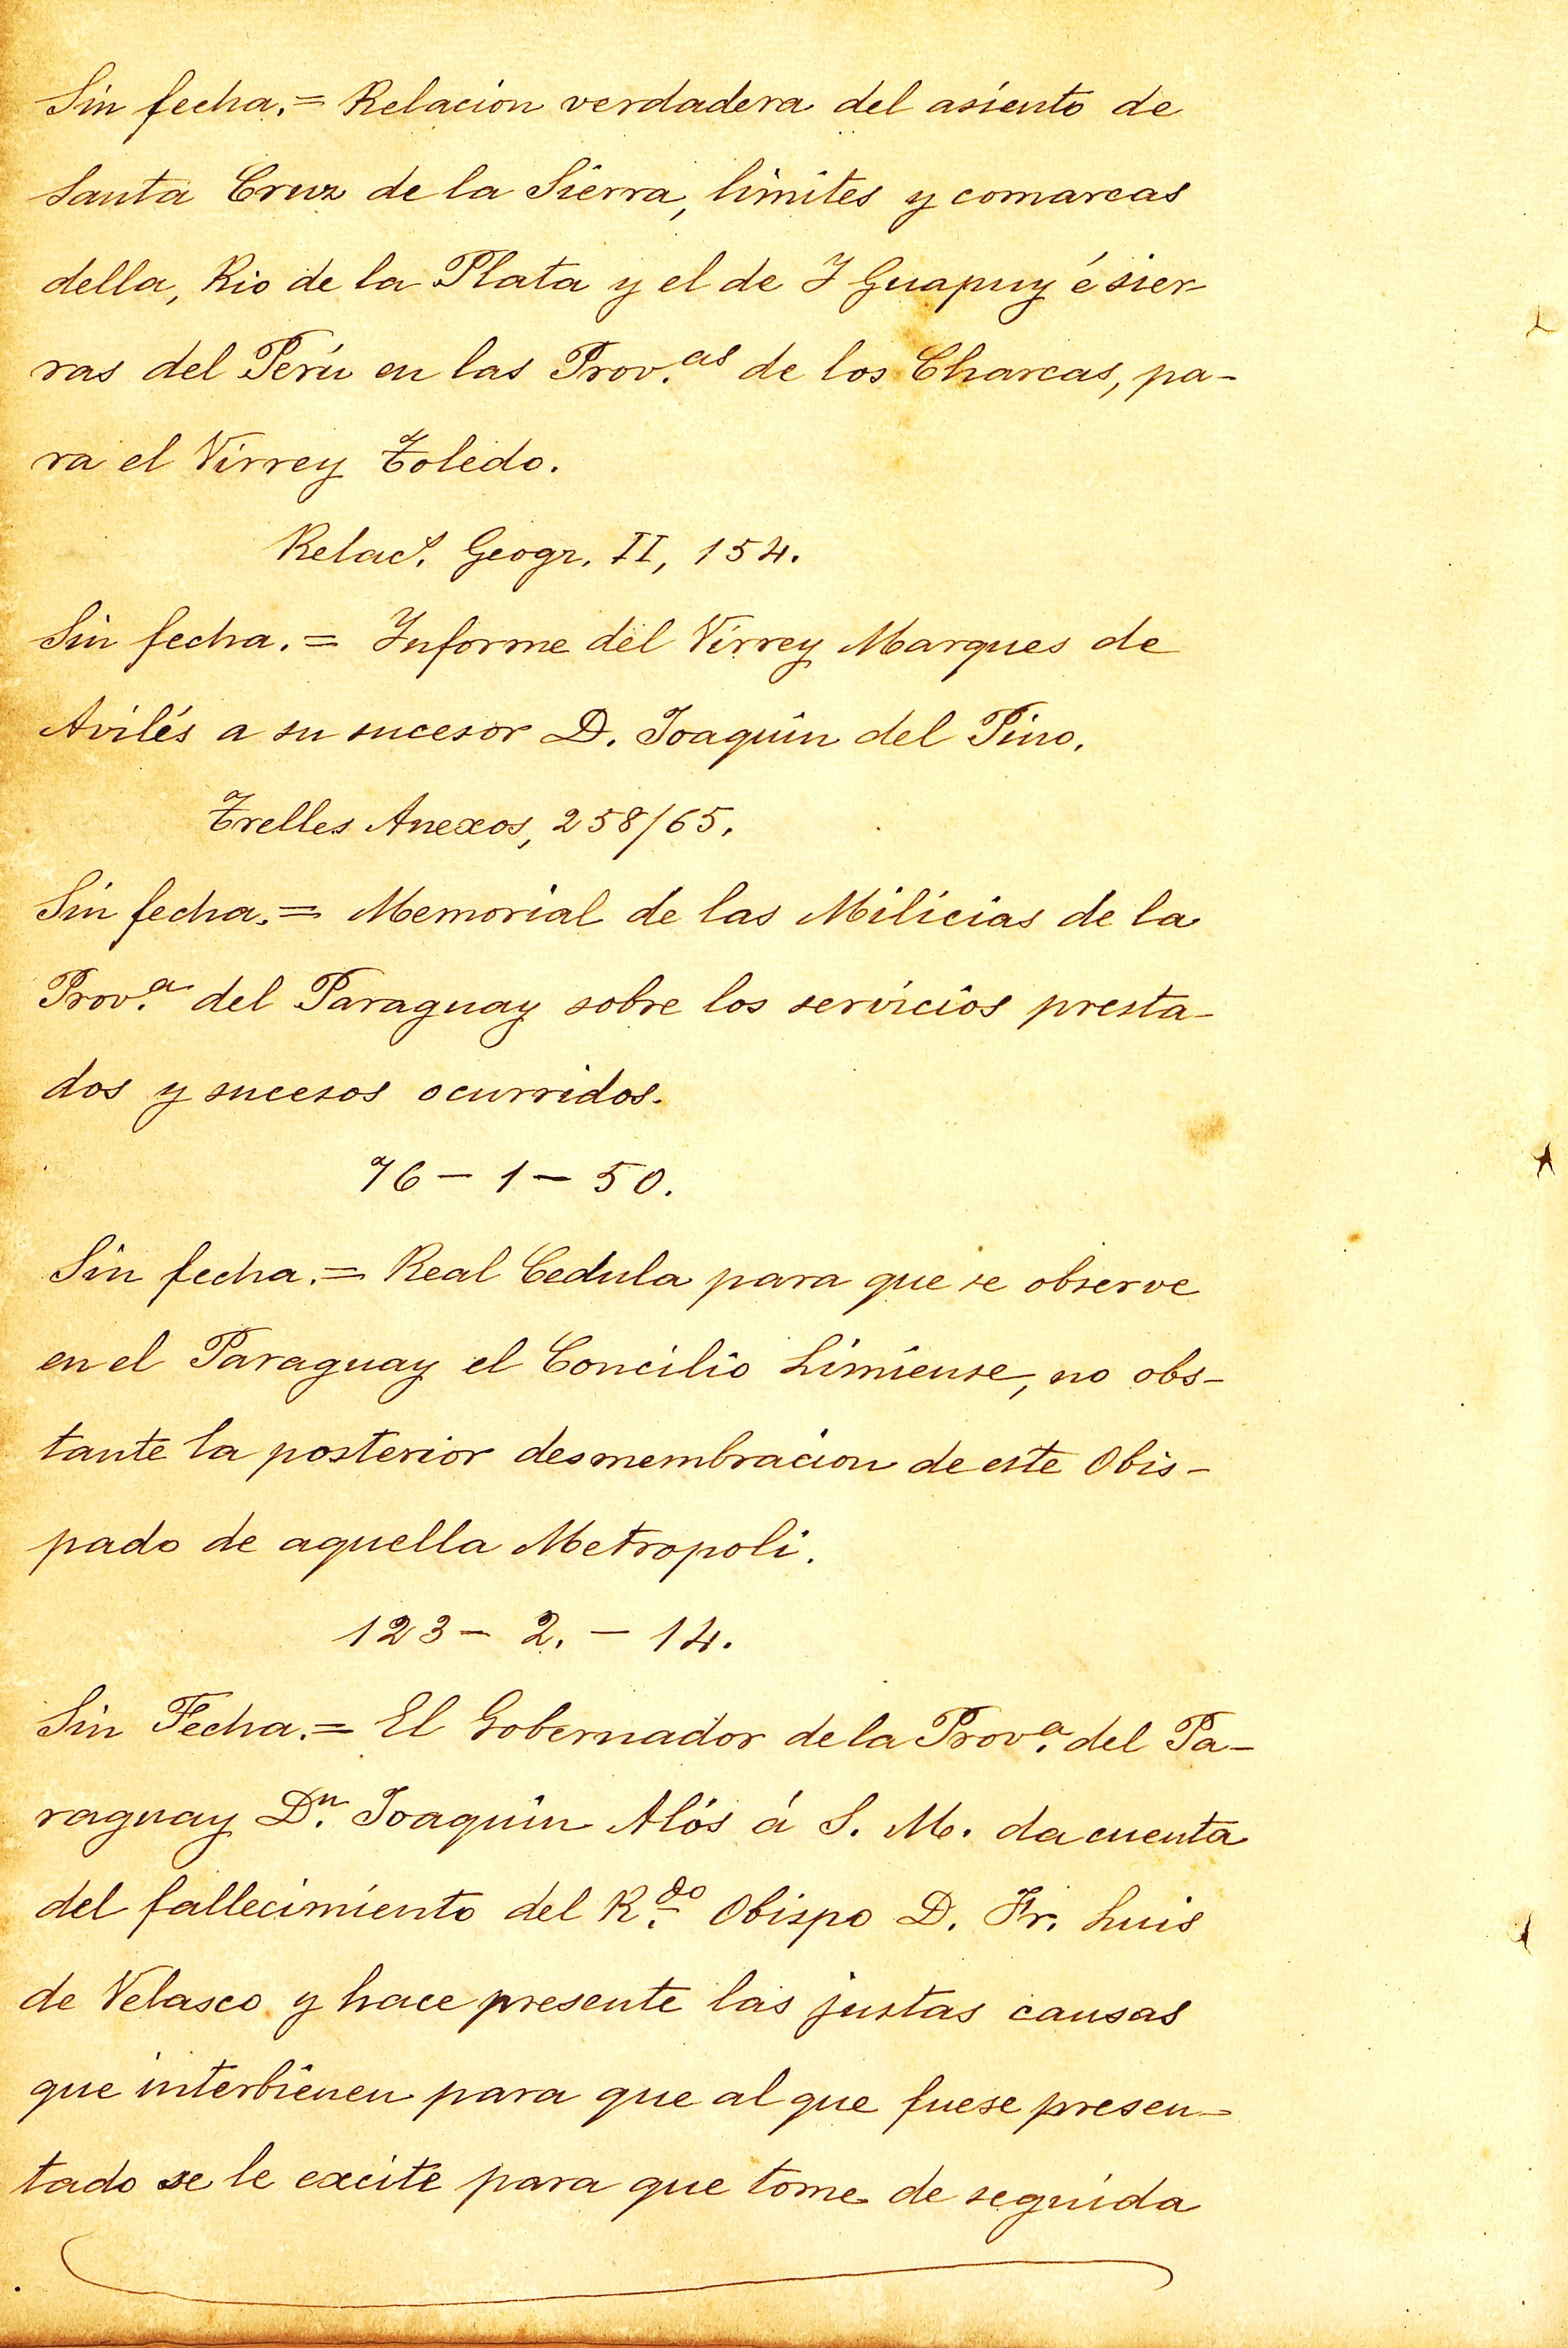 Sin fecha.= Relacion verdadera del asiento de
Santa Cruz de la Sierra, limites y comarcas
della, Rio de la Plata y el de I Guapuy é sier-
ras del Perú en las Prov.as de los Charcas, pa-
ra el Virrey Toledo.
Relac.s Geogr. II, 154.
Sin fecha.= Informe del Virrey Marques de
Avilés a su sucesor D. Joaquin del Pino.
Trelles Anexos, 258/65.
Sin fecha.= Memorial de las Milicias de la
Prov.a del Paraguay sobre los servicios presta-
dos y sucesos ocurridos.
76-1-50.
Sin fecha.= Real Cedula para que se observe
en el Paraguay el Concilio Limiense, no obs-
tante la posterior desmembracion de este Obis-
pado de aquella Metropoli.
123-2.-14.
Sin Fecha.= El Gobernador de la Prov.a del Pa-
raguay D.n Joaquin Alós á S. M. da cuenta
del fallecimiento del R.do Obispo D. Fr. Luis
de Velasco y hace presente las justas causas
que interbienen para que al que fuese presen=
tado se le excite para que tome de seguida